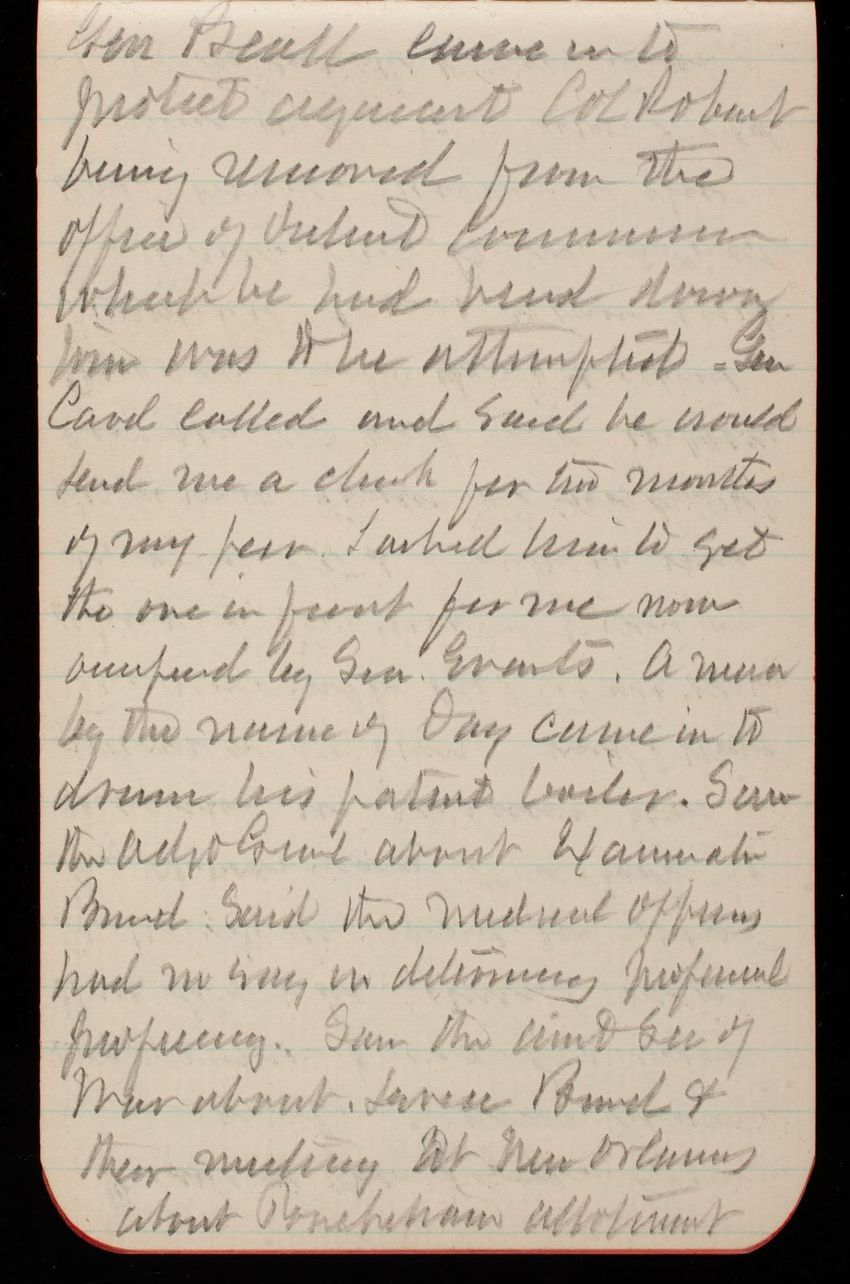 Gen Beall came in to
protest against Col Robert
being removed from the
office of District Commissioner
which he had heard
him was to be attempted - Gen
called and said he would
send me a check for two months
of my pew. I asked him to get
the one in front for me now
occupied by Gen. Evarts. A man
by the name of Day came in to
his patent boiler. Saw
the Adjt Genl about Examination
Board. Said the medical officers
had no say in determining professional
proficiency. Saw the asst Sec of
War about Levee Board &
their meeting at New Orleans
about allotment